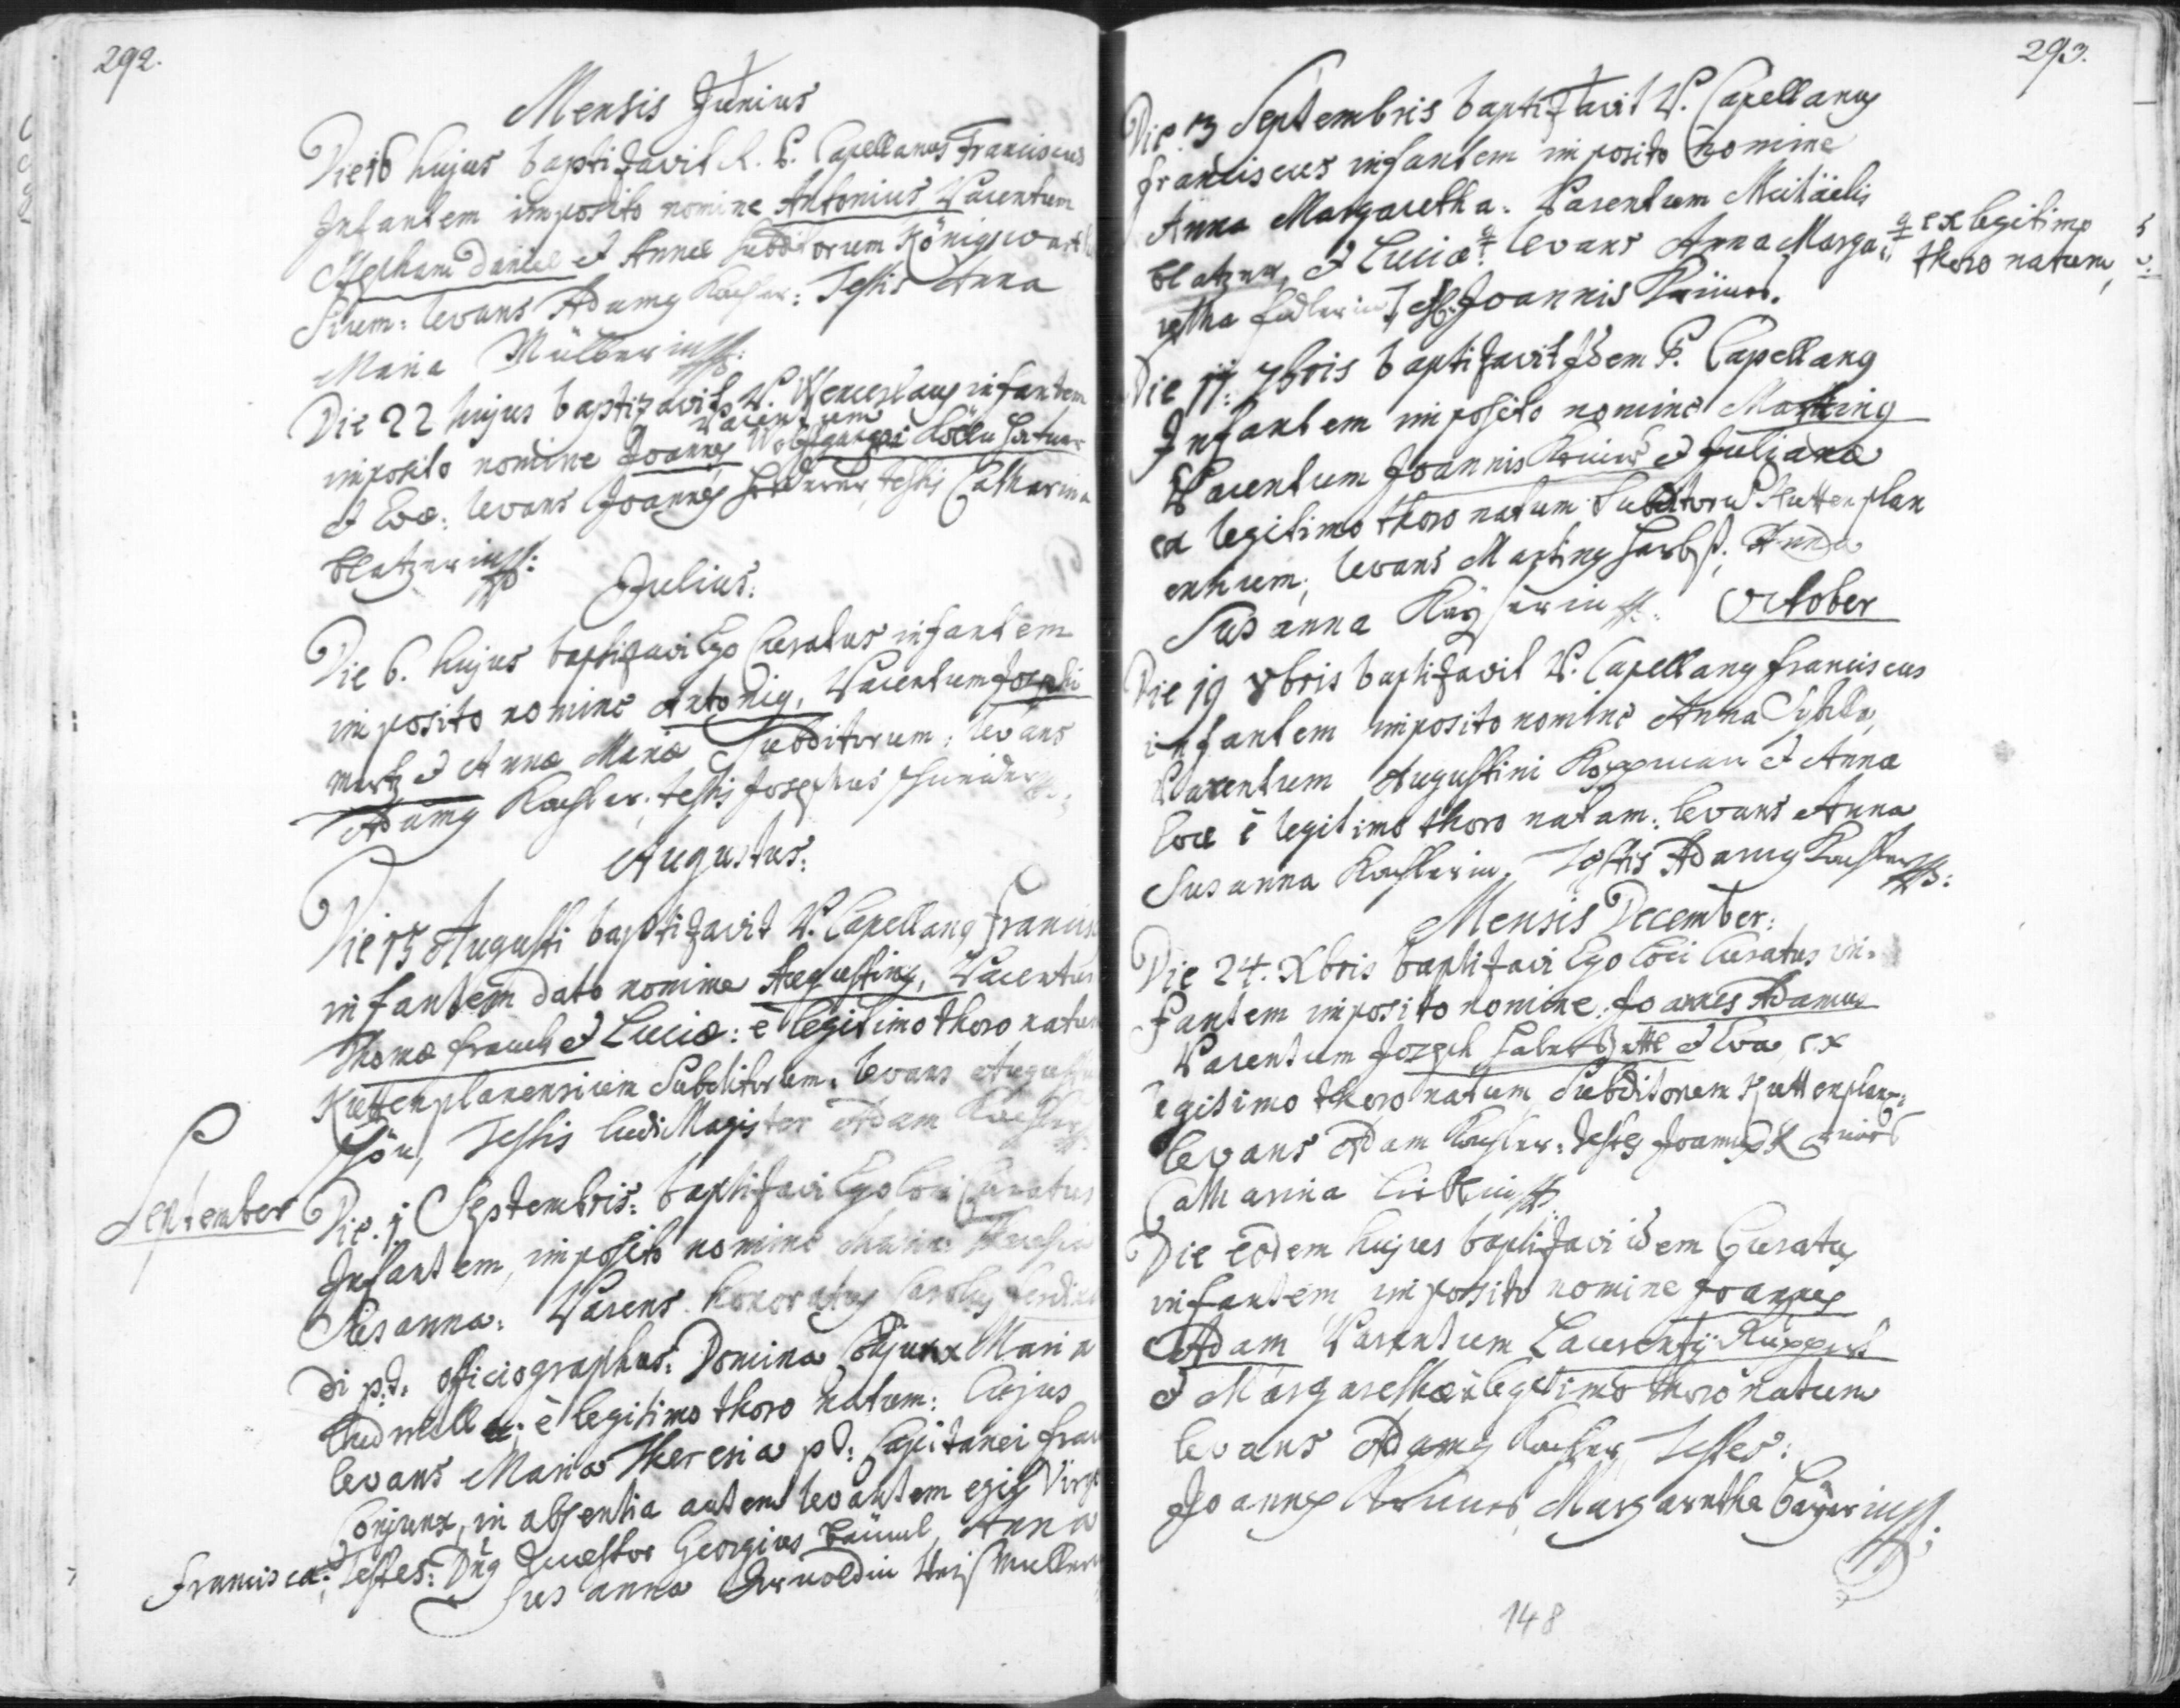 292.
Mensis Junius
Die 16 hujus baptizavit R. P. Capellanus Franciscus
Infantem imposito nomine Antonius, Parentum
Stephani Daniel et Annae subditorum Königswart
sium: levans Adamus Kochler: Testis Anna
Maria Müllerin
Die 22 hujus baptizavit P. Wenceslaus infantem
Parentum
imposito nomine Joannes Wolfgangi
et Evae: levans Joannes testis Catharina
Platzerin
Julius:
Die 6. hujus baptizavi Ego Curatus infantem
imposito nomine Antonius, Parentum Josephi
Martz et Annae Mariae Subditorum: levans
Adamus Kochler: testis Josephus Schneider
Augustus:
Die 15 Augusti baptizavit P. Capellanus Francisc
infantem dato nomine Augustinus, Parentum
Thomae Franck et Luciae: è legitimo thoro natum
Kuttenplanensium Subditorum: levans Augustin
Schön, Testis ludi Magister Adam Kochler
September
Die 1 Septembris: baptizavi Ego loci Curatus
Infantem, imposito nomine Maria Theresia
Susanna: Parens honoratus Carolus Ferdinan
di p.t. officiographus: Domina Conjunx Maria
Ludmilla: è legitimo thoro natum: Cujus
levans Maria Theresia p.t: Capitanei Fran
Conjunx, in absentia autem levantem egit Virgo
Francisca: Testes: Dnus Quaestor Georgius Anna
Susanna Arnoldin
293.
Die 13 Septembris baptizavit P. Capellanus
Franciscus infantem imposito nomine
Anna Margaretha: Parentum Michäelis
Platzer, et Luciae levans Anna Marga=
ex legitimo
thoro natum,
retha Test: Joannis
Die 17: 7bris baptizavit Idem P. Capellanus
Infantem imposito nomine Martinus
Parentum Joannis et Juliana
ex legitimo thoro natum Subditorum Kuttenplan
ensium, levans Martinus Herbst,
Susanna Kayserin
October
Die 19 8bris baptizavit P. Capellanus Franciscus
infantem imposito nomine Anna Sybilla,
Parentum Augustini Koppman et Annae
Evae è legitimo thoro natam: levans Anna
Susanna Kochlerin, Testis Adamus Kochler
Mensis December:
Die 24. Xbris baptizavi Ego loci Curatus in=
fantem imposito nomine: Joannes Adamus
Parentum Joseph et Eva ex
legitimo thoro natum Subditorum Kuttenplan:
levans Adam Kochler: Testes Joannes
Catharina
Die eodem hujus baptizavi idem Curatus
infantem imposito nomine Joannes
Adam Parentum Laurentij Ruppert
et Margarethae legitimo thoro natum
levans Adamus Kochler, Testes:
Joannes Margaretha Bayerin
148